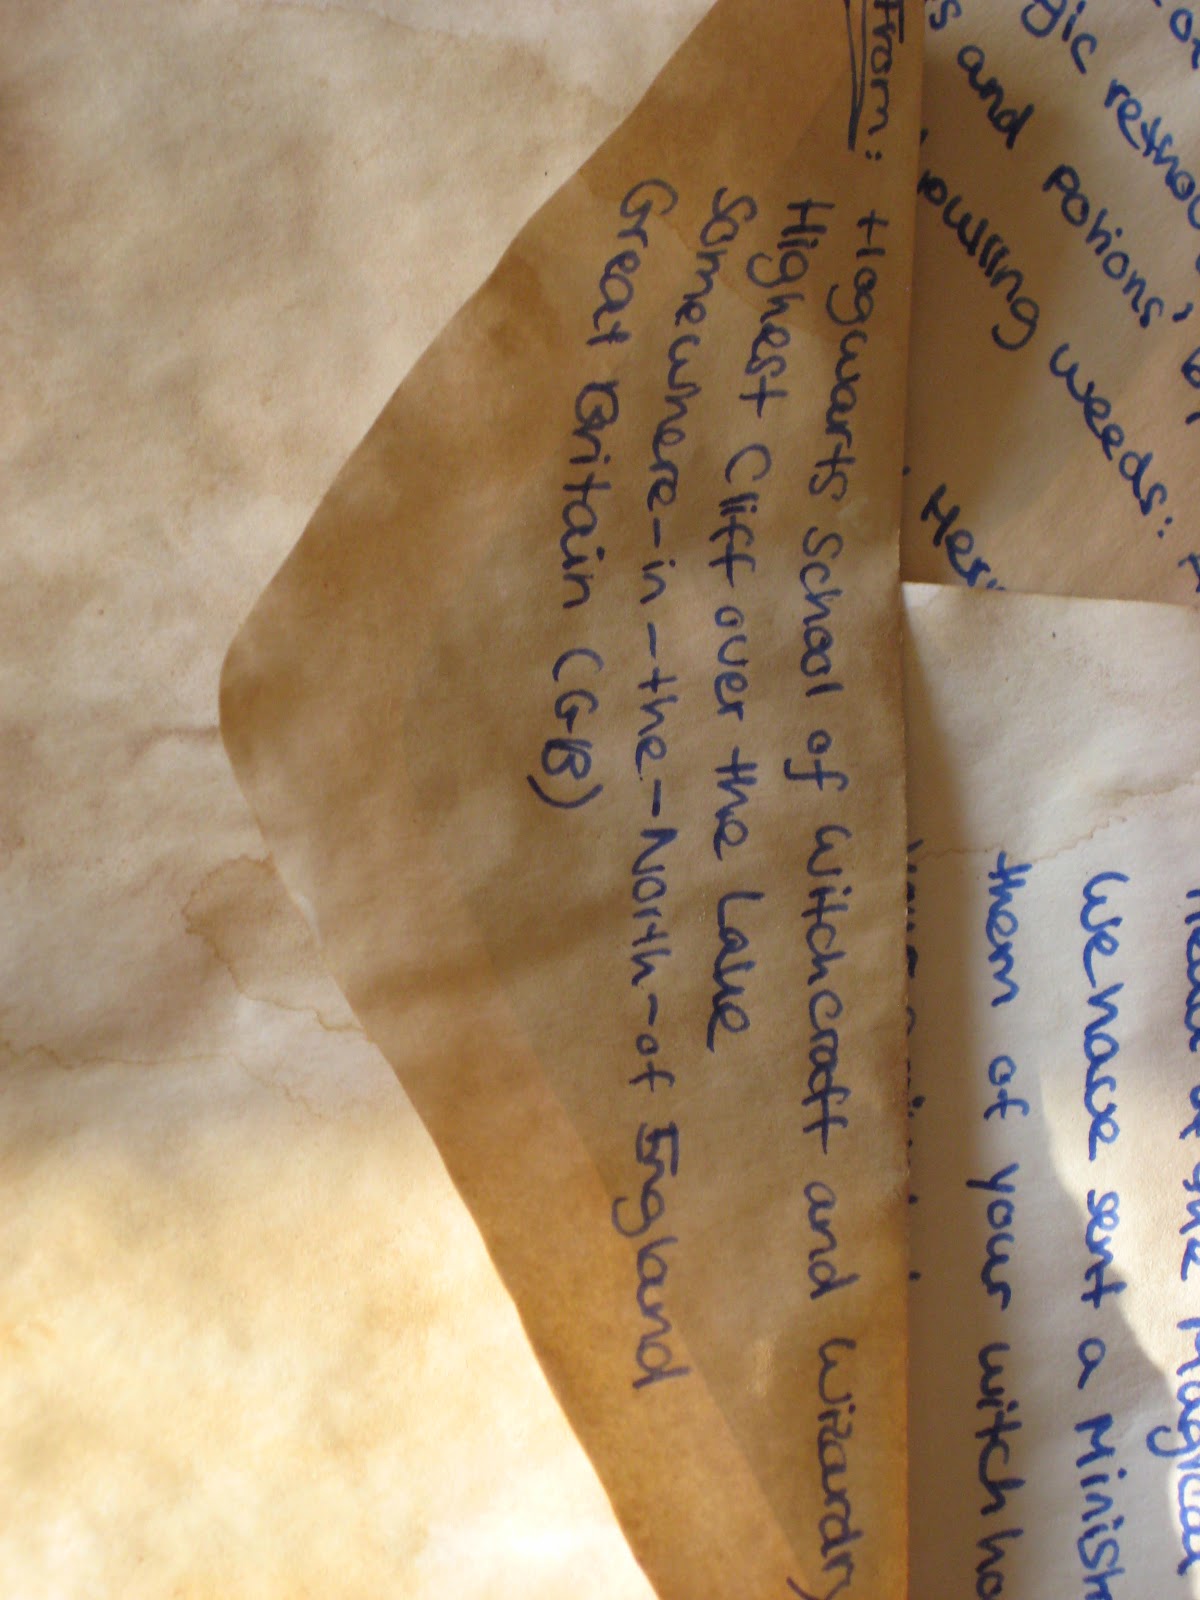 From: Hogwarts School of Witchcraft and Wizardry
Highest Cliff over the Lake
Somewhere-in-the-North-of England
Great Britain (GB)
and potions,
pulling weeds:
We have sent a
them of your witch